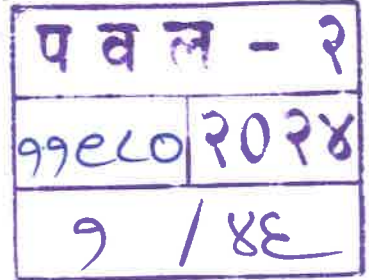 प व ल - २
११९८० २०२४
१ / ४६